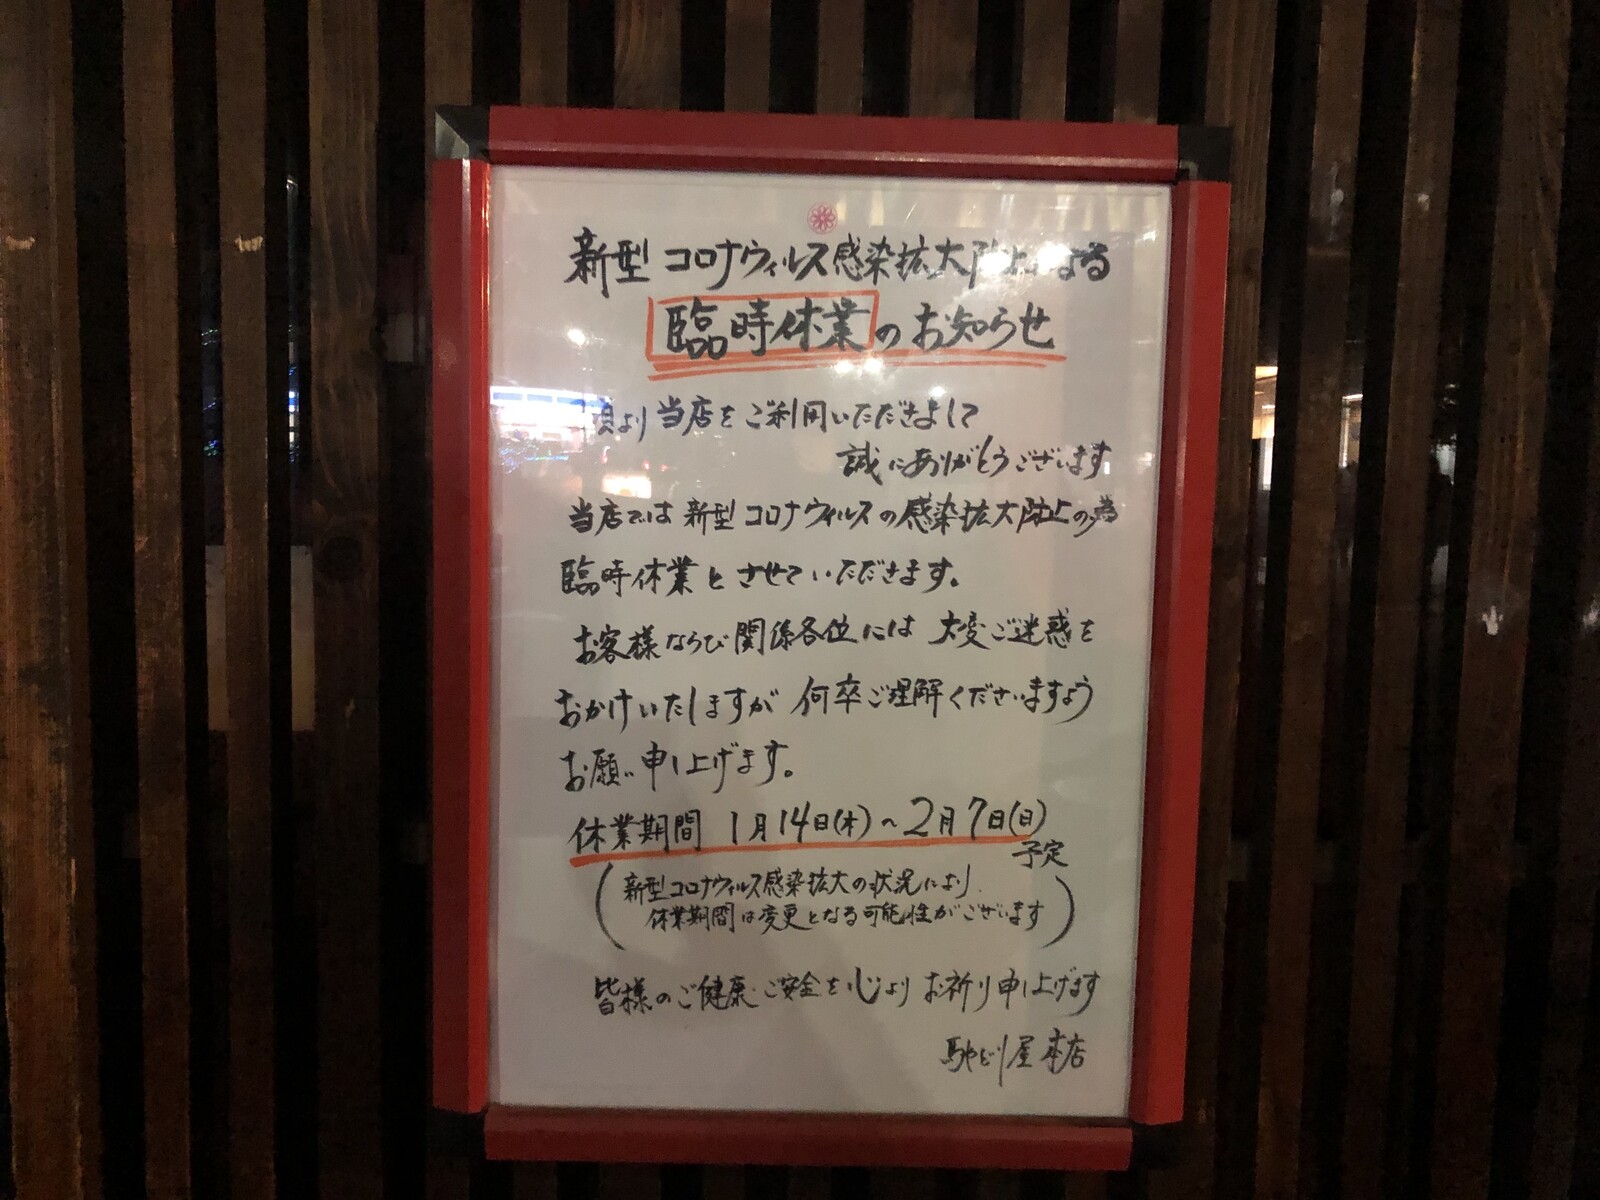 新型コロナウィルス感染拡大防止による
臨時休業のお知らせ
頃より当店をご利用いただきまして
誠にありがとうございます
当店では新型コロナウィルスの感染拡大防止の為
臨時休業とさせていただきます。
お客様ならび関係各位には大変ご迷惑を
おかけいたしますが何卒ご理解くださいますよう
お願い申し上げます。
休業期間 1月14日(木)~2月7日(日)
予定
(新型コロナウィルス感染拡大の状況により、
休業期間は変更となる可能性がございます)
皆様のご健康・ご安全を心よりお祈り申し上げます
屋 本店